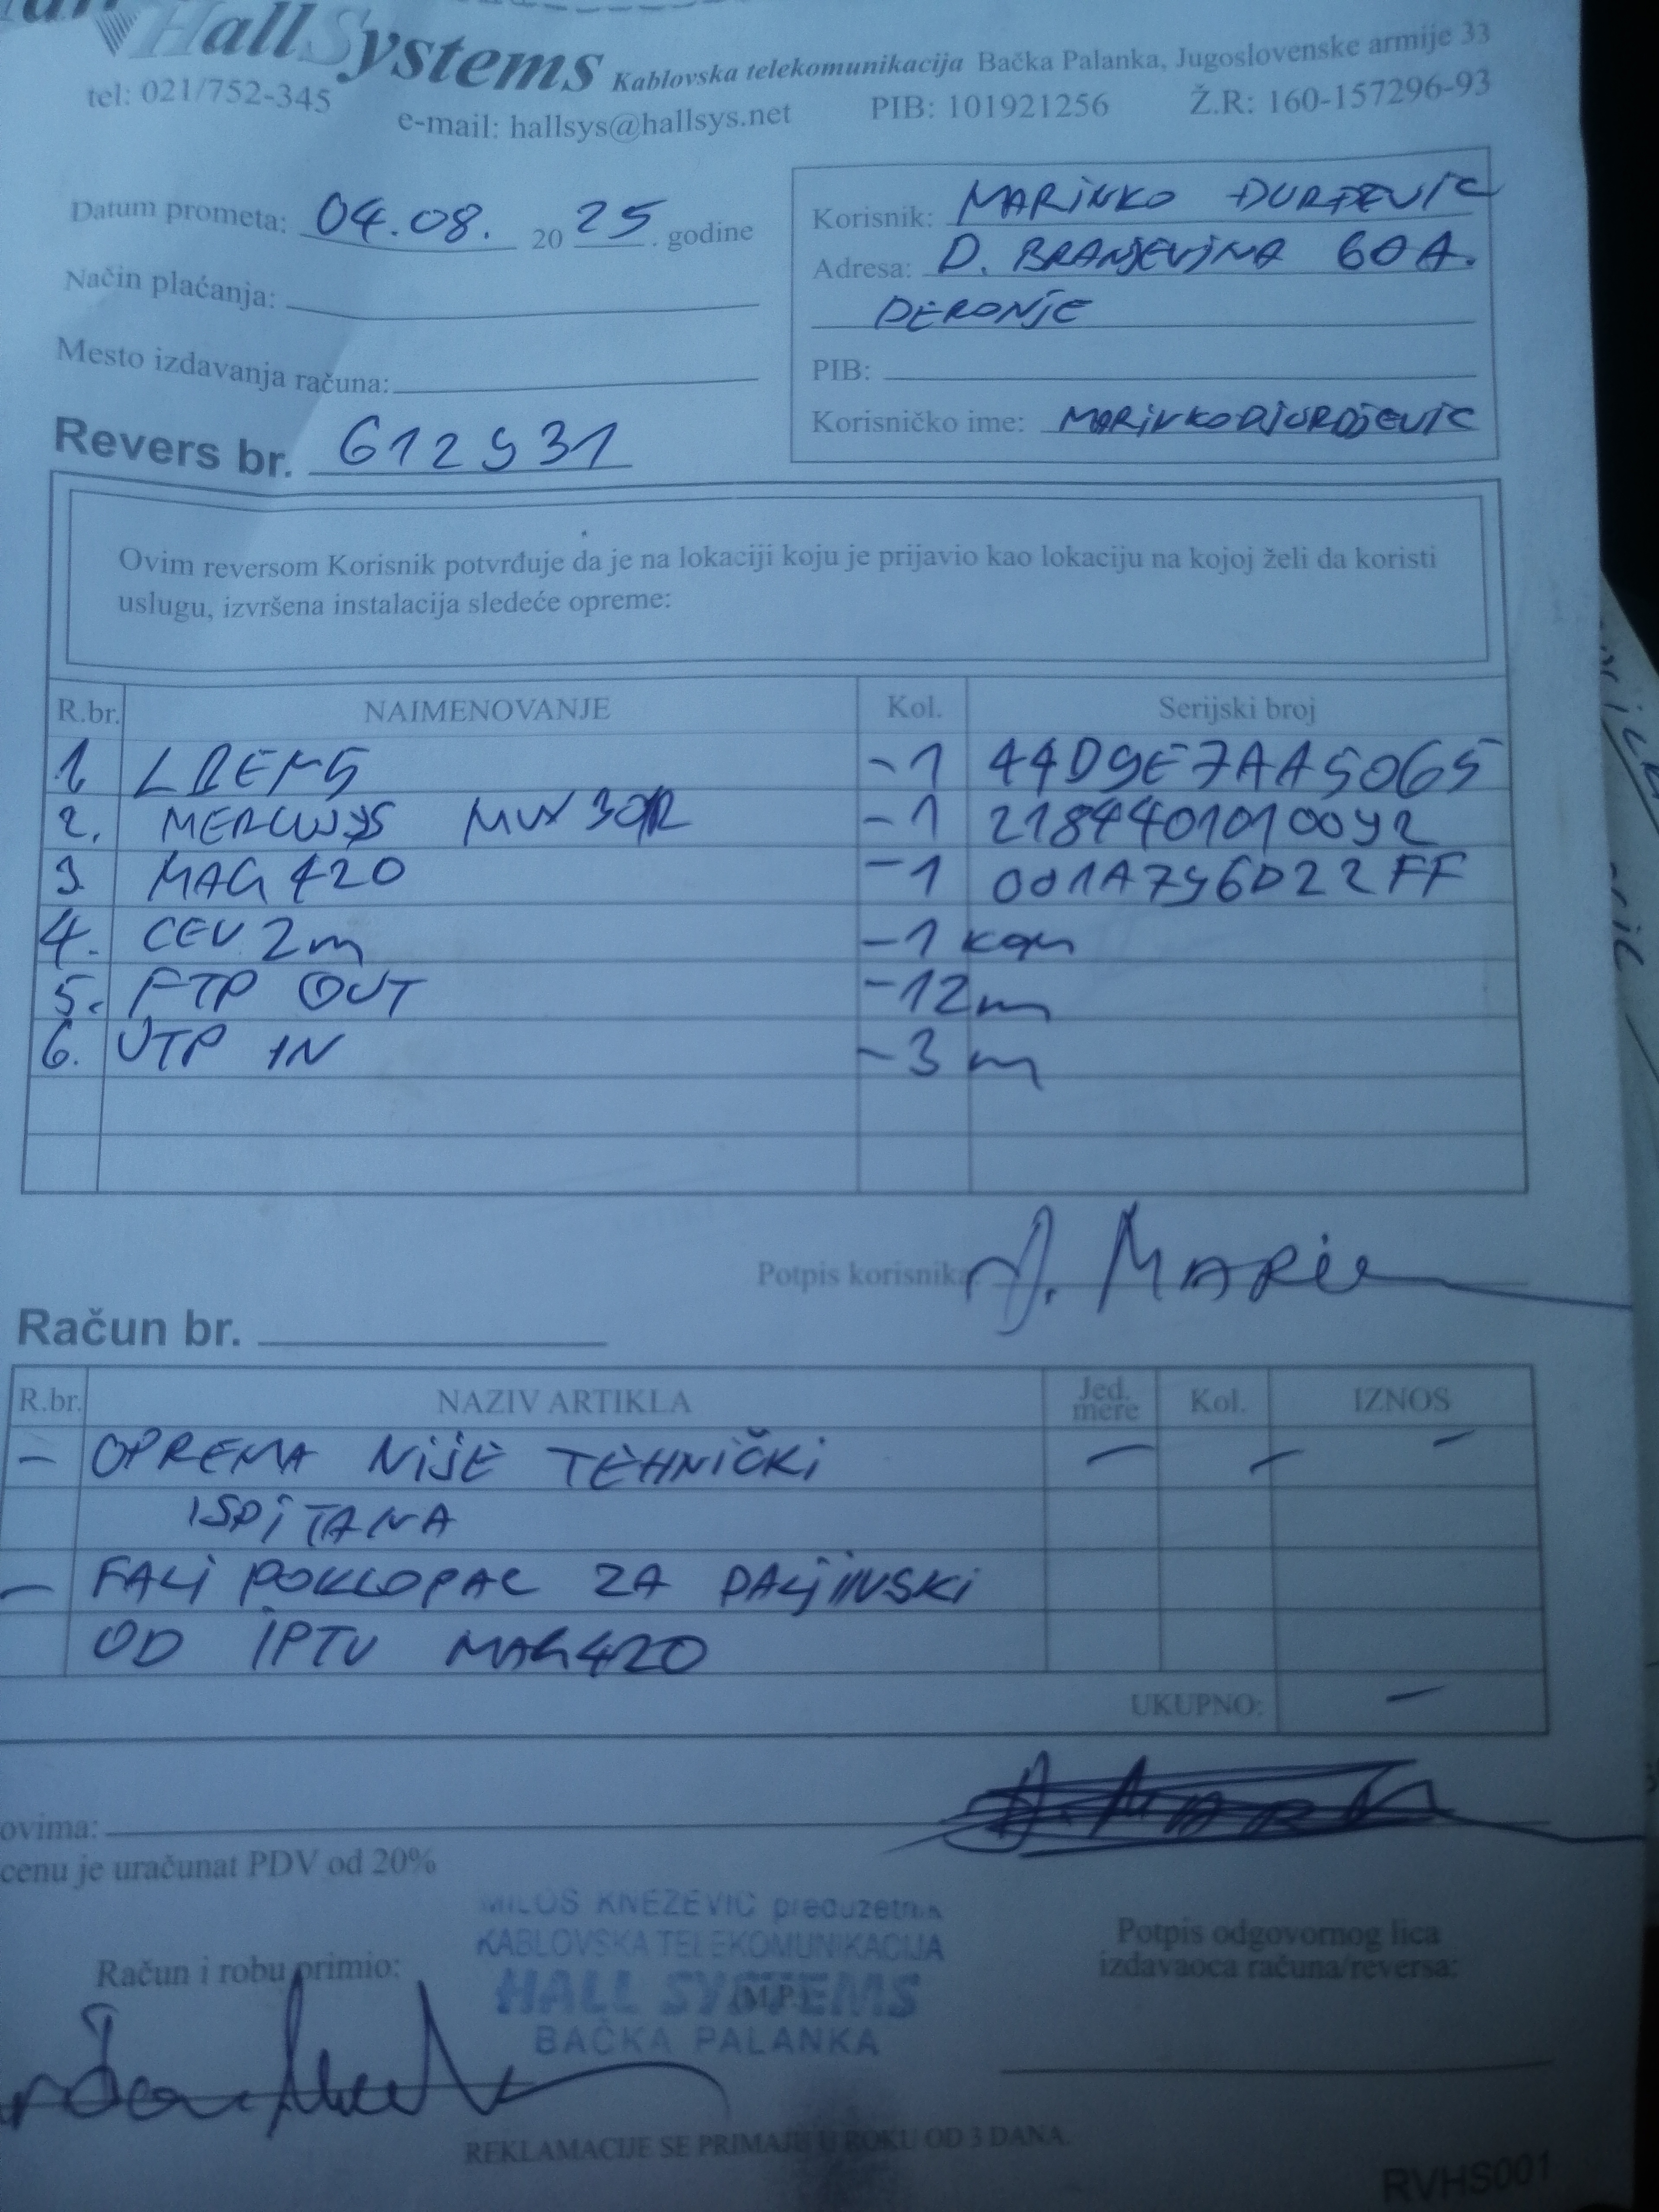 HallSystems Kablovska telekomunikacija Bačka Palanka, Jugoslovenske armije 33
tel: 021/752-345 e-mail: hallsys@hallsys.net PIB: 101921256 Ž.R: 160-157296-93
Datum prometa: 04.08. 2025. godine
Način plaćanja:
Mesto izdavanja računa:
Revers br. 612931
Korisnik: MARINKO ĐURĐEVIĆ
Adresa: D. BRANJEVINA 60A.
DERONJE
PIB:
Korisničko ime: MARINKODJURDJEVIC
Ovim reversom Korisnik potvrđuje da je na lokaciji koju je prijavio kao lokaciju na kojoj želi da koristi
uslugu, izvršena instalacija sledeće opreme:
R.br. NAIMENOVANJE Kol. Serijski broj
1. -1 44D9E7AA5065
2. MERCUSYS MW30R -1
3. MAG 420 -1 001A796D22FF
4. CEV 2m -1 kom
5. FTP OUT -12m
6. UTP IN -3m
Potpis korisnika:
Račun br.
R.br. NAZIV ARTIKLA Jed. mere Kol. IZNOS
- OPREMA NIJE TEHNIČKI - - -
ISPITANA
- FALI POKLOPAC ZA DALJINSKI
OD IPTV MAG420
UKUPNO: -
ovima:
cenu je uračunat PDV od 20%
MILOŠ KNEŽEVIĆ preduzetnik
KABLOVSKA TELEKOMUNIKACIJA
HALL SYSTEMS
BAČKA PALANKA
(M.P.)
Račun i robu primio:
Potpis odgovornog lica
izdavaoca računa/reversa:
REKLAMACIJE SE PRIMAJU U ROKU OD 3 DANA.
RVHS001